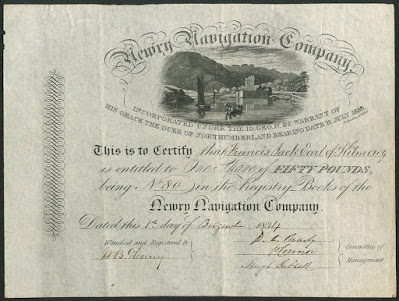 Newry Navigation Company.
INCORPORATED UNDER THE 10. GEO. IV BY WARRANT OF
HIS GRACE THE DUKE OF NORTHUMBERLAND BEARING DATE JULY 1829.
This is to Certify that Francis Jack Earl of Kilmorey
is entitled to One Share of FIFTY POUNDS,
being No. 80 in the Registry Books of the
Newry Navigation Company.
Dated this 1st day of August 1834
Witnessed and Registered by
Committee of
Management.